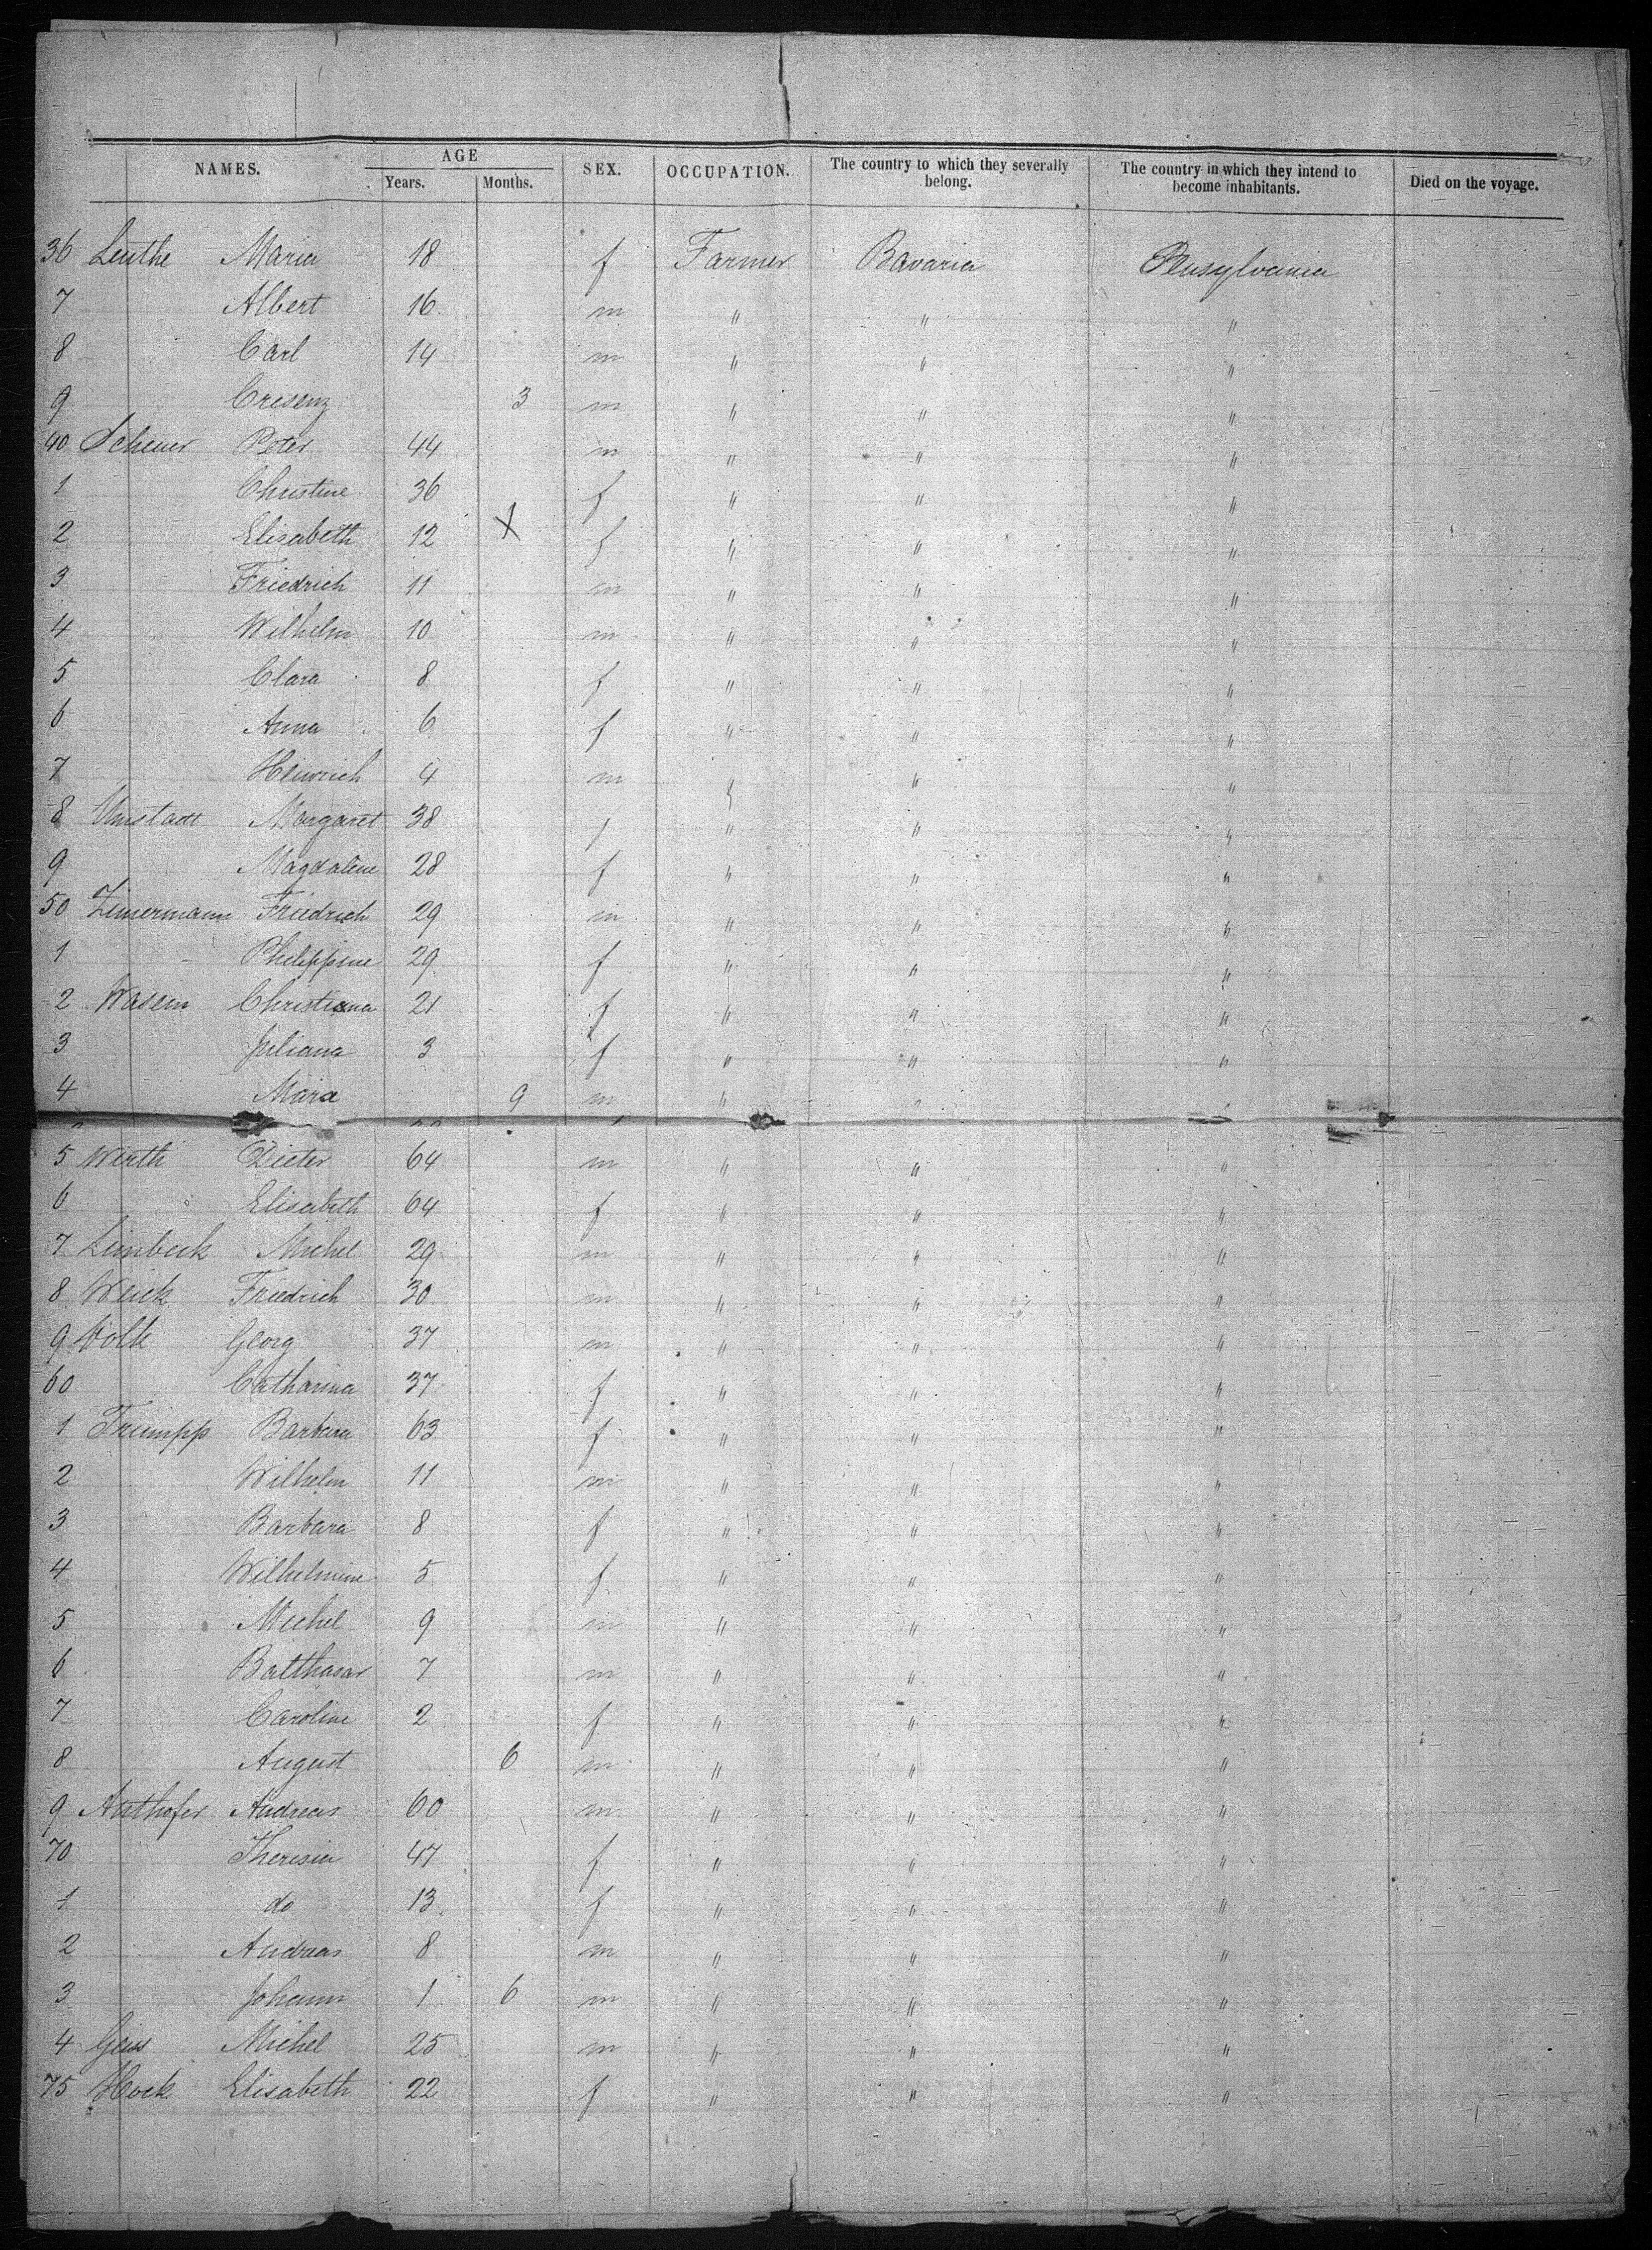 NAMES. AGE SEX. OCCUPATION. The country to which they severally belong. The country in which they intend to become inhabitants. Died on the voyage.
Years. Months.
36 Leuthe Maria 18 f Farmer Bavaria Pensylvania
7 Albert 16 m " " "
8 Carl 14 m " " "
9 Cresenz 3 m " " "
40 Scheuer Peter 44 m " " "
1 Christine 36 f " " "
2 Elisabeth 12 X f " " "
3 Friedrich 11 m " " "
4 Wilhelm 10 m " " "
5 Clara 8 f " " "
6 Anna 6 f " " "
7 Heinrich 4 m " " "
8 Umstadt Margaret 38 f " " "
9 Magdalene 28 f " " "
50 Zimermann Friedrich 29 m " " "
1 Philippine 29 f " " "
2 Wasem Christiana 21 f " " "
3 Juliana 3 f " " "
4 Mara 9 m " " "
5 Wirth Dieter 64 m " " "
6 Elisabeth 64 f " " "
7 Limbeck Michel 29 m " " "
8 Weick Friedrich 30 m " " "
9 Volk Georg 37 m " " "
60 Catharina 37 f " " "
1 Trumpp Barbara 63 f " " "
2 Wilhelm 11 m " " "
3 Barbara 8 f " " "
4 Wilhelmine 5 f " " "
5 Michel 9 m " " "
6 Balthasar 7 m " " "
7 Caroline 2 f " " "
8 August 6 m " " "
9 Authofer Andreas 60 m " " "
70 Theresia 47 f " " "
1 do 13 f " " "
2 Andreas 8 m " " "
3 Johann 1 6 m " " "
4 Geiss Michel 25 m " " "
75 Hock Elisabeth 22 f " " "